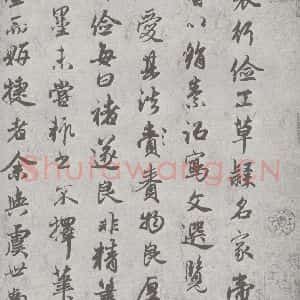 行儉工草隸名家帝
以絹素詔寫文選覽
愛其法賚賚物良厚
儉每曰褚遂良非精筆
墨未嘗輒書不擇筆
而妍捷者余與虞世南
Shufawang.CN